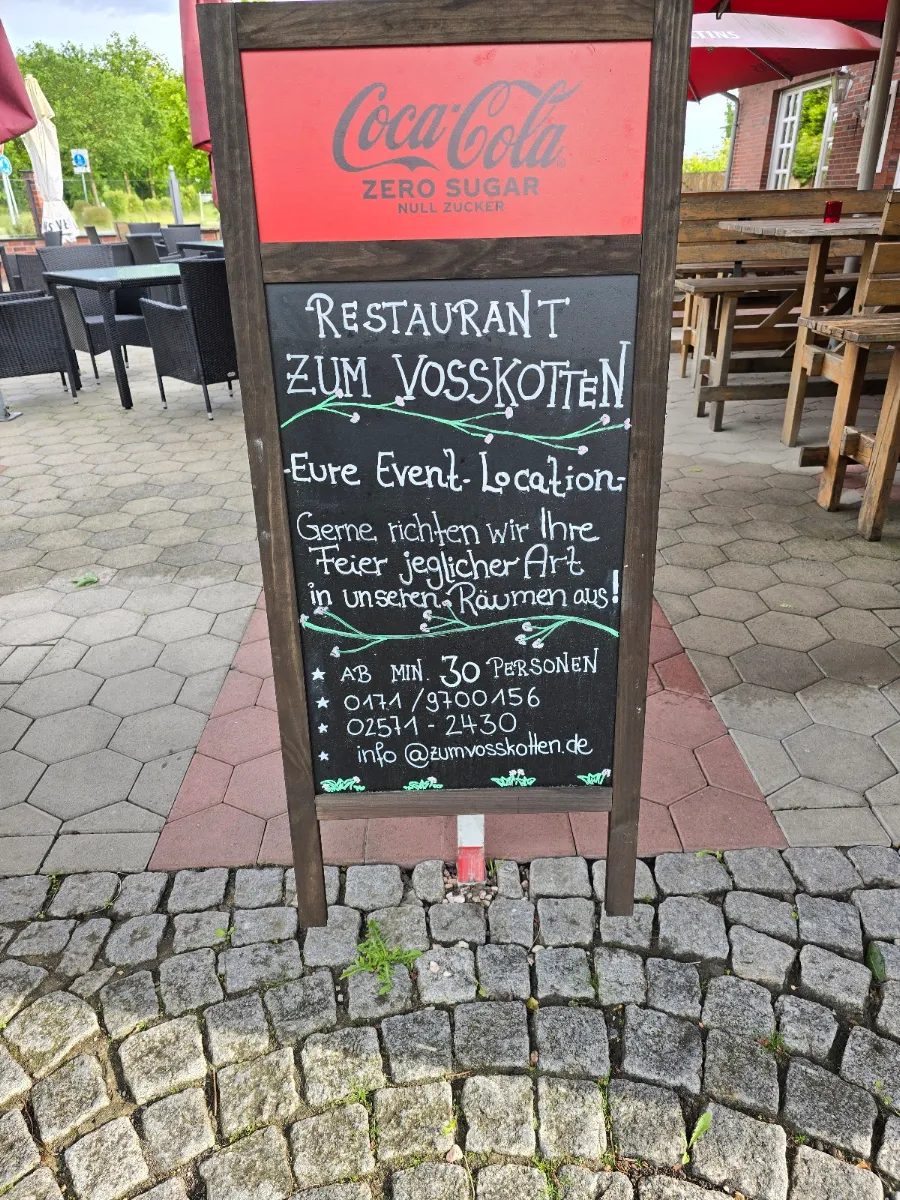 Coca-Cola
ZERO SUGAR
NULL ZUCKER
TINS
RESTAURANT
ZUM VOSSKOTTEN
-Eure Event-Location-
Gerne richten wir Ihre
Feier jeglicher Art
in unseren Räumen aus!
★ AB MIN. 30 PERSONEN
★ 0171/9700156
★ 02571-2430
★ info@zumvosskotten.de